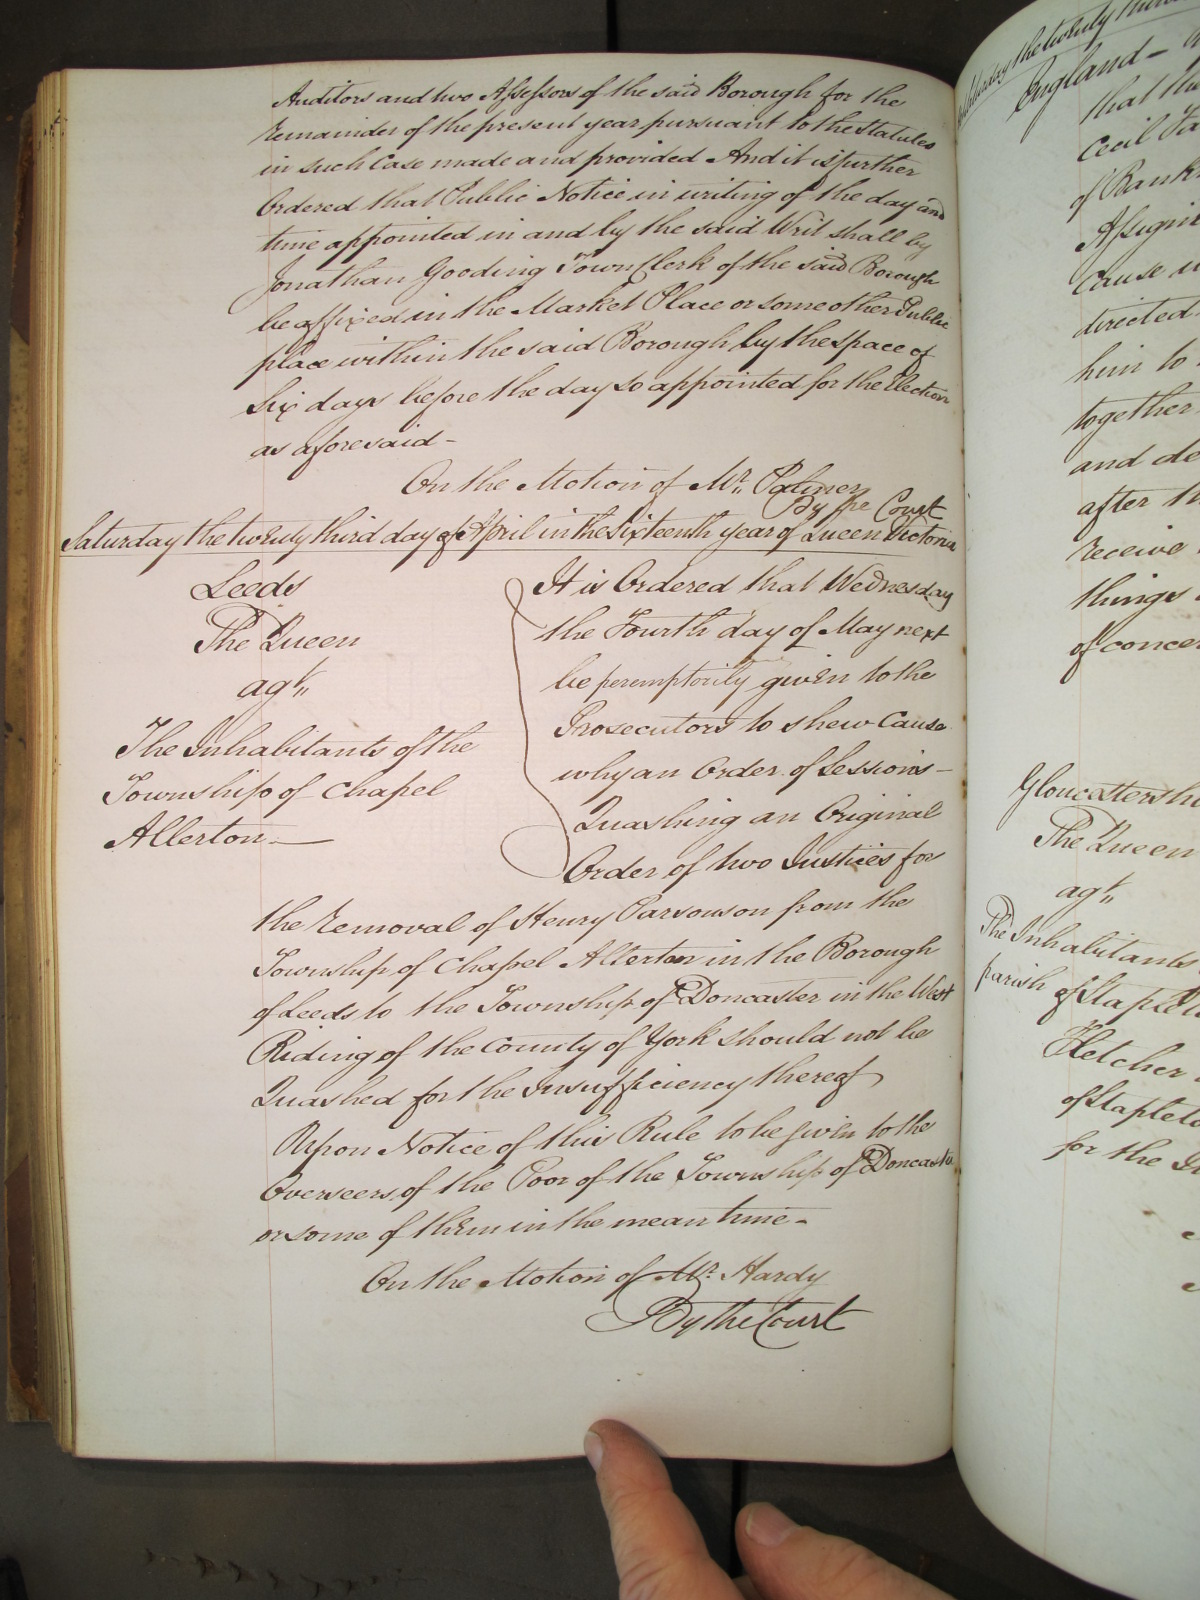 Auditors and two Assessors of the said Borough for the
remainder of the present year pursuant to the statutes
in such Case made and provided And it is further
Ordered that Public Notice in writing of the day and
time appointed in and by the said Writ shall by
Jonathan Gooding Town Clerk of the said Borough
be affixed in the Market Place or some other Public
place within the said Borough by the space of
Six days before the day so appointed for the Election
as aforesaid -
On the Motion of Mr. Palmer
By the Court
Saturday the twenty third day of April in the Sixteenth year of Queen Victoria
Leeds
The Queen
agt.
The Inhabitants of the
Township of Chapel
Allerton
It is Ordered that Wednesday
the Fourth day of May next
be peremptorily given to the
Prosecutors to shew Cause
why an Order of Sessions -
Quashing an Original
Order of two Justices for
the removal of Henry Parsonson from the
Township of Chapel Allerton in the Borough
of Leeds to the Township of Doncaster in the West
Riding of the County of York should not be
Quashed for the Insufficiency thereof
Upon Notice of this Rule to be given to the
Overseers of the Poor of the Township of Doncaster
or some of them in the mean time -
On the Motion of Mr. Hardy
By the Court
the twenty third
England -
that the
Cecil
of Bank
Cause
directed
him to
together
and de
after th
receive
things
of concer
Gloucestershi
The Queen
agt.
The Inhabitants
parish of Stapleto
Fletcher
of Stapleto
for the